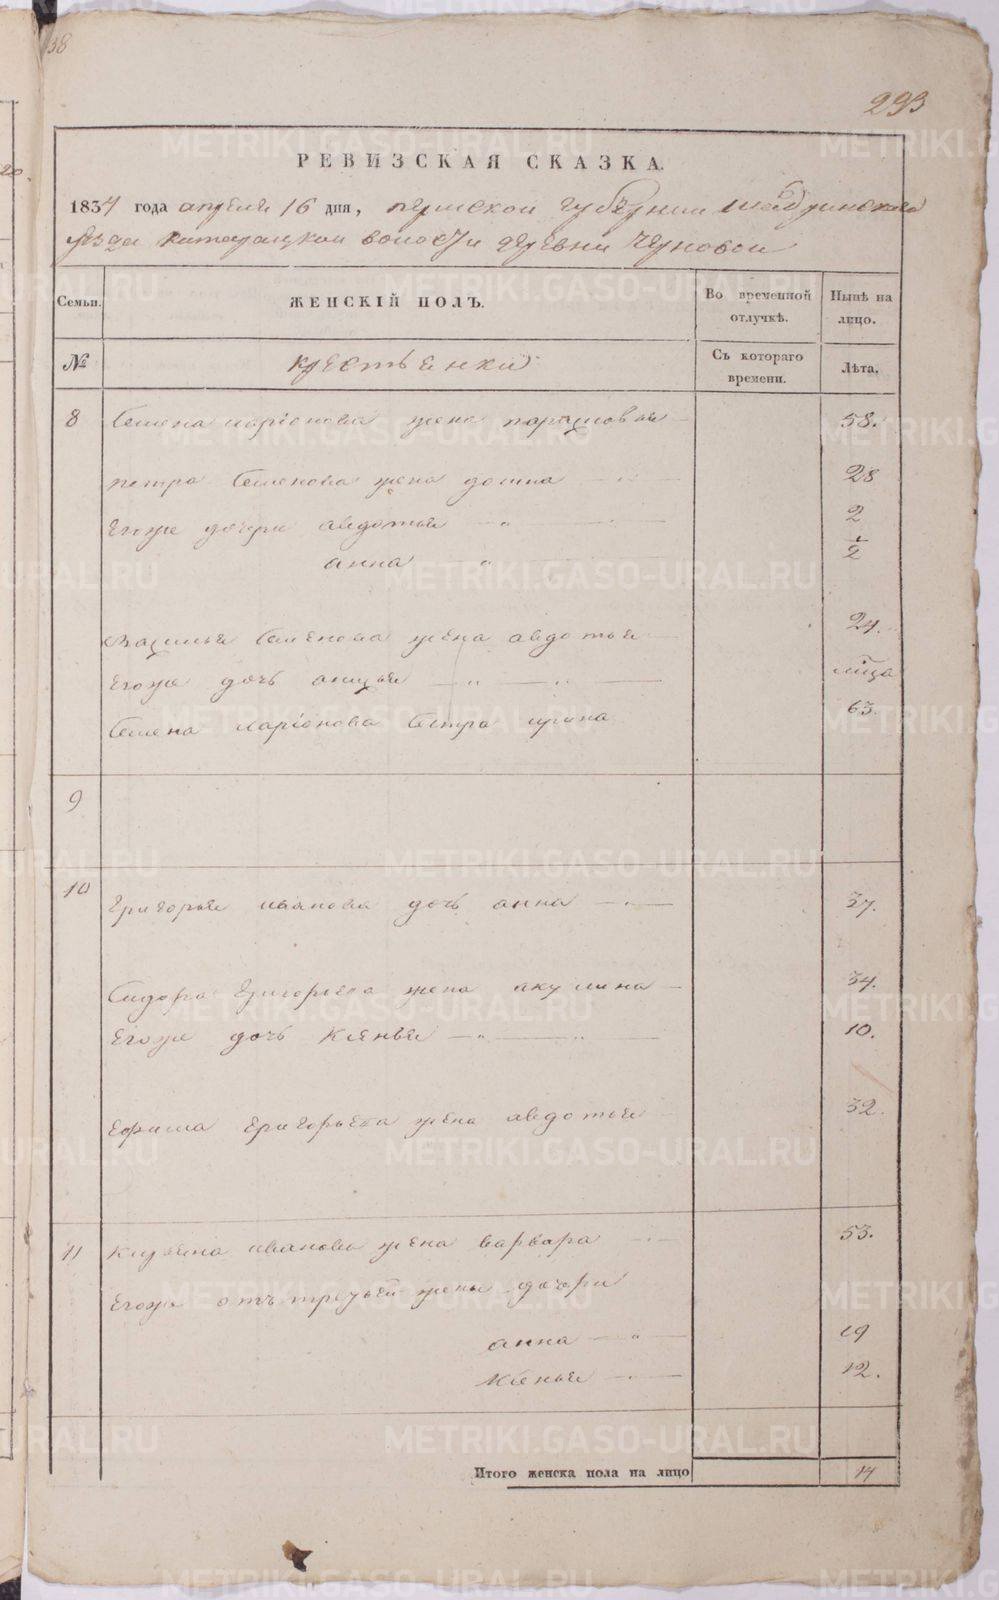 38
293
РЕВИЗСКАЯ СКАЗКА.
1834 года апреля 16 дня, пермской губернии шадринскаго
уезда катайацкой волости деревни черновой
Семьи.
ЖЕНСКІЙ ПОЛЪ.
Во временной отлучкѣ.
Нынѣ на лицо.
№
крестьянки
Съ котораго времени.
Лѣта.
8 Семена ларіонова жена парасковья 58.
петра Семенова жена домна 28
Егоже дочери авдотья 2
анна 1/2
Василья Семенова жена авдотья 24.
Егоже дочь анисья
Семена Ларіонова Сестра ирина 63.
9
10 Григорья иванова дочь анна 37.
Сидора Григорьева жена акулина 34.
Егоже дочь Ксенья 10.
Ефима Григорьева жена авдотья 32.
11 иванова жена варвара 53.
Егоже отъ третьей жены дочери
анна 19
Ксенья 12.
Итого женска пола на лицо 14
METRIKI.GASO-URAL.RU